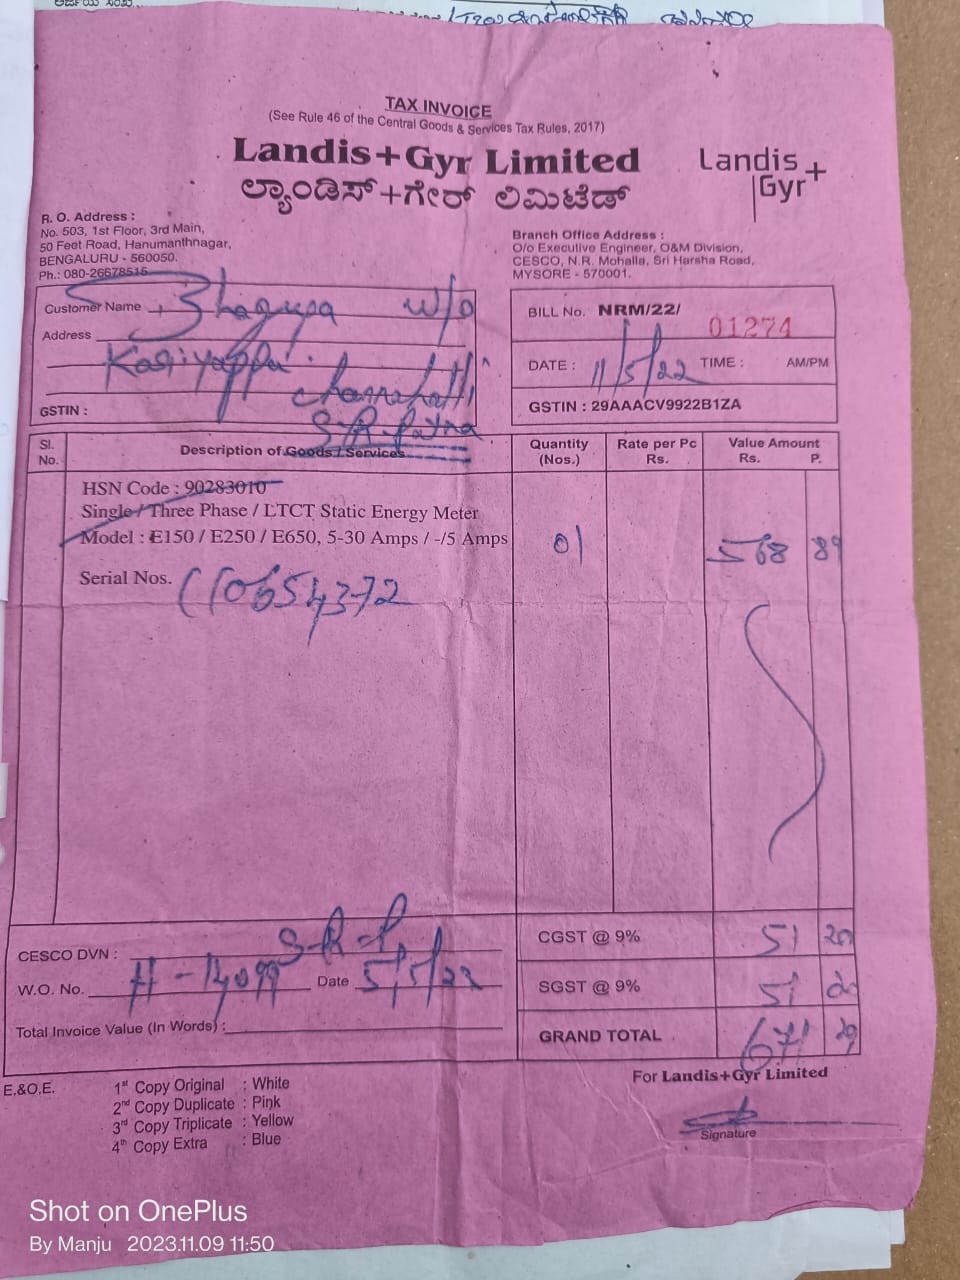 TAX INVOICE
(See Rule 46 of the Central Goods & Services Tax Rules, 2017)
Landis+Gyr Limited
ಲ್ಯಾಂಡಿಸ್+ಗೇರ್ ಲಿಮಿಟೆಡ್
Landis+
Gyr
R. O. Address :
No. 503, 1st Floor, 3rd Main,
50 Feet Road, Hanumanthnagar,
BENGALURU - 560050.
Ph.: 080-26678515
Branch Office Address :
O/o Executive Engineer, O&M Division,
CESCO, N.R. Mohalla, Sri Harsha Road,
MYSORE - 570001.
Customer Name w/o
Address
Channahalli
S-R-Patna
GSTIN :
BILL No. NRM/22/ 01274
DATE : 11/5/22 TIME : AM/PM
GSTIN : 29AAACV9922B1ZA
Sl. No. Description of Goods / Services Quantity (Nos.) Rate per Pc Rs. Value Amount Rs. P.
HSN Code : 90283010
Single / Three Phase / LTCT Static Energy Meter
Model : E150 / E250 / E650, 5-30 Amps / -/5 Amps 01 568 89
Serial Nos.
CESCO DVN : S-R-P
W.O. No. Date 5/5/22
Total Invoice Value (In Words) :
CGST @ 9% 51 20
SGST @ 9% 51 20
GRAND TOTAL 671 29
E.&O.E.
1st Copy Original : White
2nd Copy Duplicate : Pink
3rd Copy Triplicate : Yellow
4th Copy Extra : Blue
For Landis+Gyr Limited
Signature
Shot on OnePlus
By Manju 2023.11.09 11:50